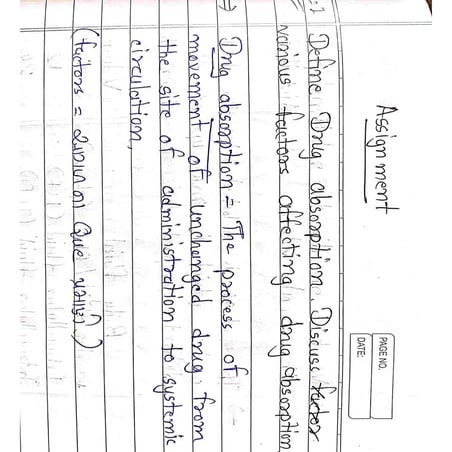 PAGE NO.
DATE:
Assignment
:1 Define Drug absorption. Discuss factor
various factors affecting drug absorption
→ Drug absorption = The process of
movement of unchanged drug from
the site of administration to systemic
circulation,
(factors = Que )